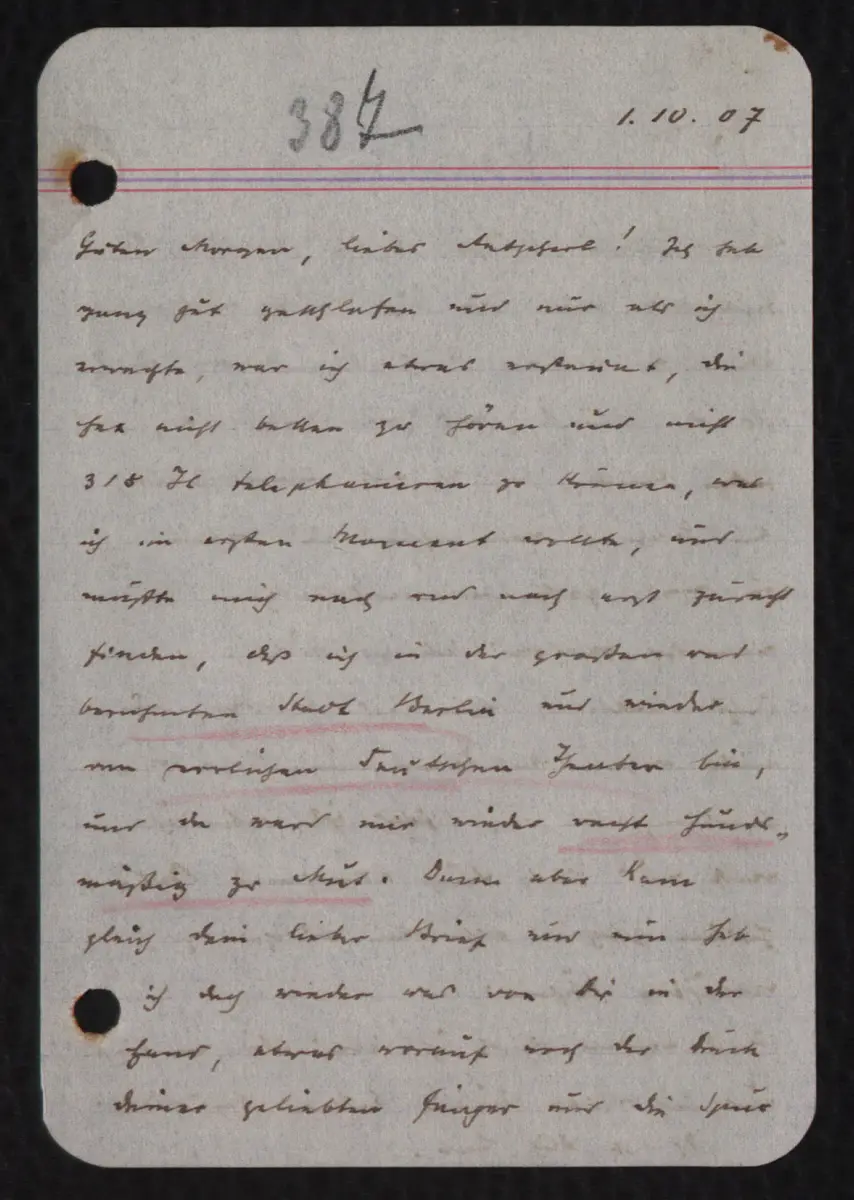 387
1. 10. 07
Guten Morgen, liebes ! Ich hab
ganz gut geschlafen und nur als ich
erwachte, war ich etwas erstaunt, die
nicht bellen zu hören und nicht
318 telephonieren zu können, was
ich im ersten Moment wollte, und
mußte mich nach und nach erst zurecht
finden, daß ich in der großen und
berühmten Stadt Berlin und wieder
am Deutschen Theater bin,
und da ward mir wieder recht hunds-
mäßig zu Mut. Dann aber kam
gleich dein lieber Brief und nun hab
ich doch wieder was von Dir in der
Hand, etwas worauf noch der Druck
deiner geliebten Finger und die Spur